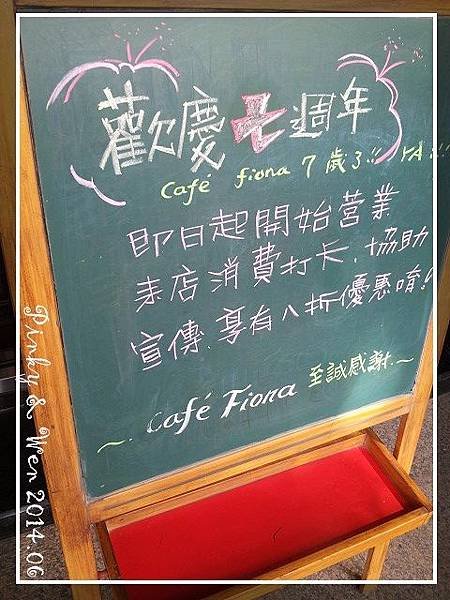 歡慶七週年
Café fiona 7 歲了!! YA!!!
即日起開始營業
来店消費打卡、協助
宣傳、享有八折優惠唷!
~. Café Fiona 至誠感謝.~
Pinky & Wen 2014.06